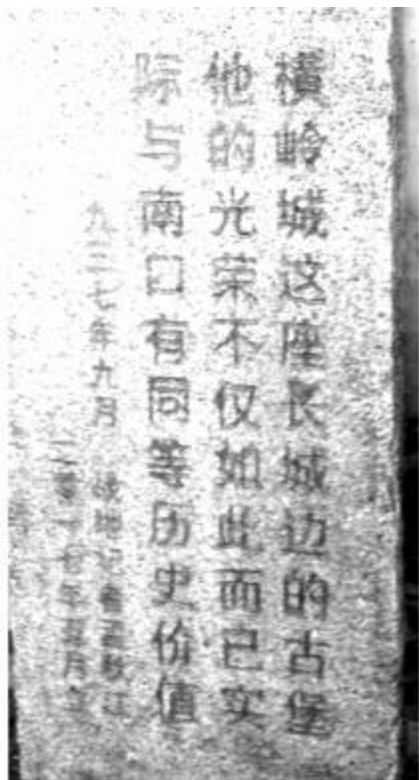 横岭城这座长城边的古堡
他的光荣不仅如此而已实
际与南口有同等历史价值
九三七年九月 战地记者孟秋江
二零一七年月立